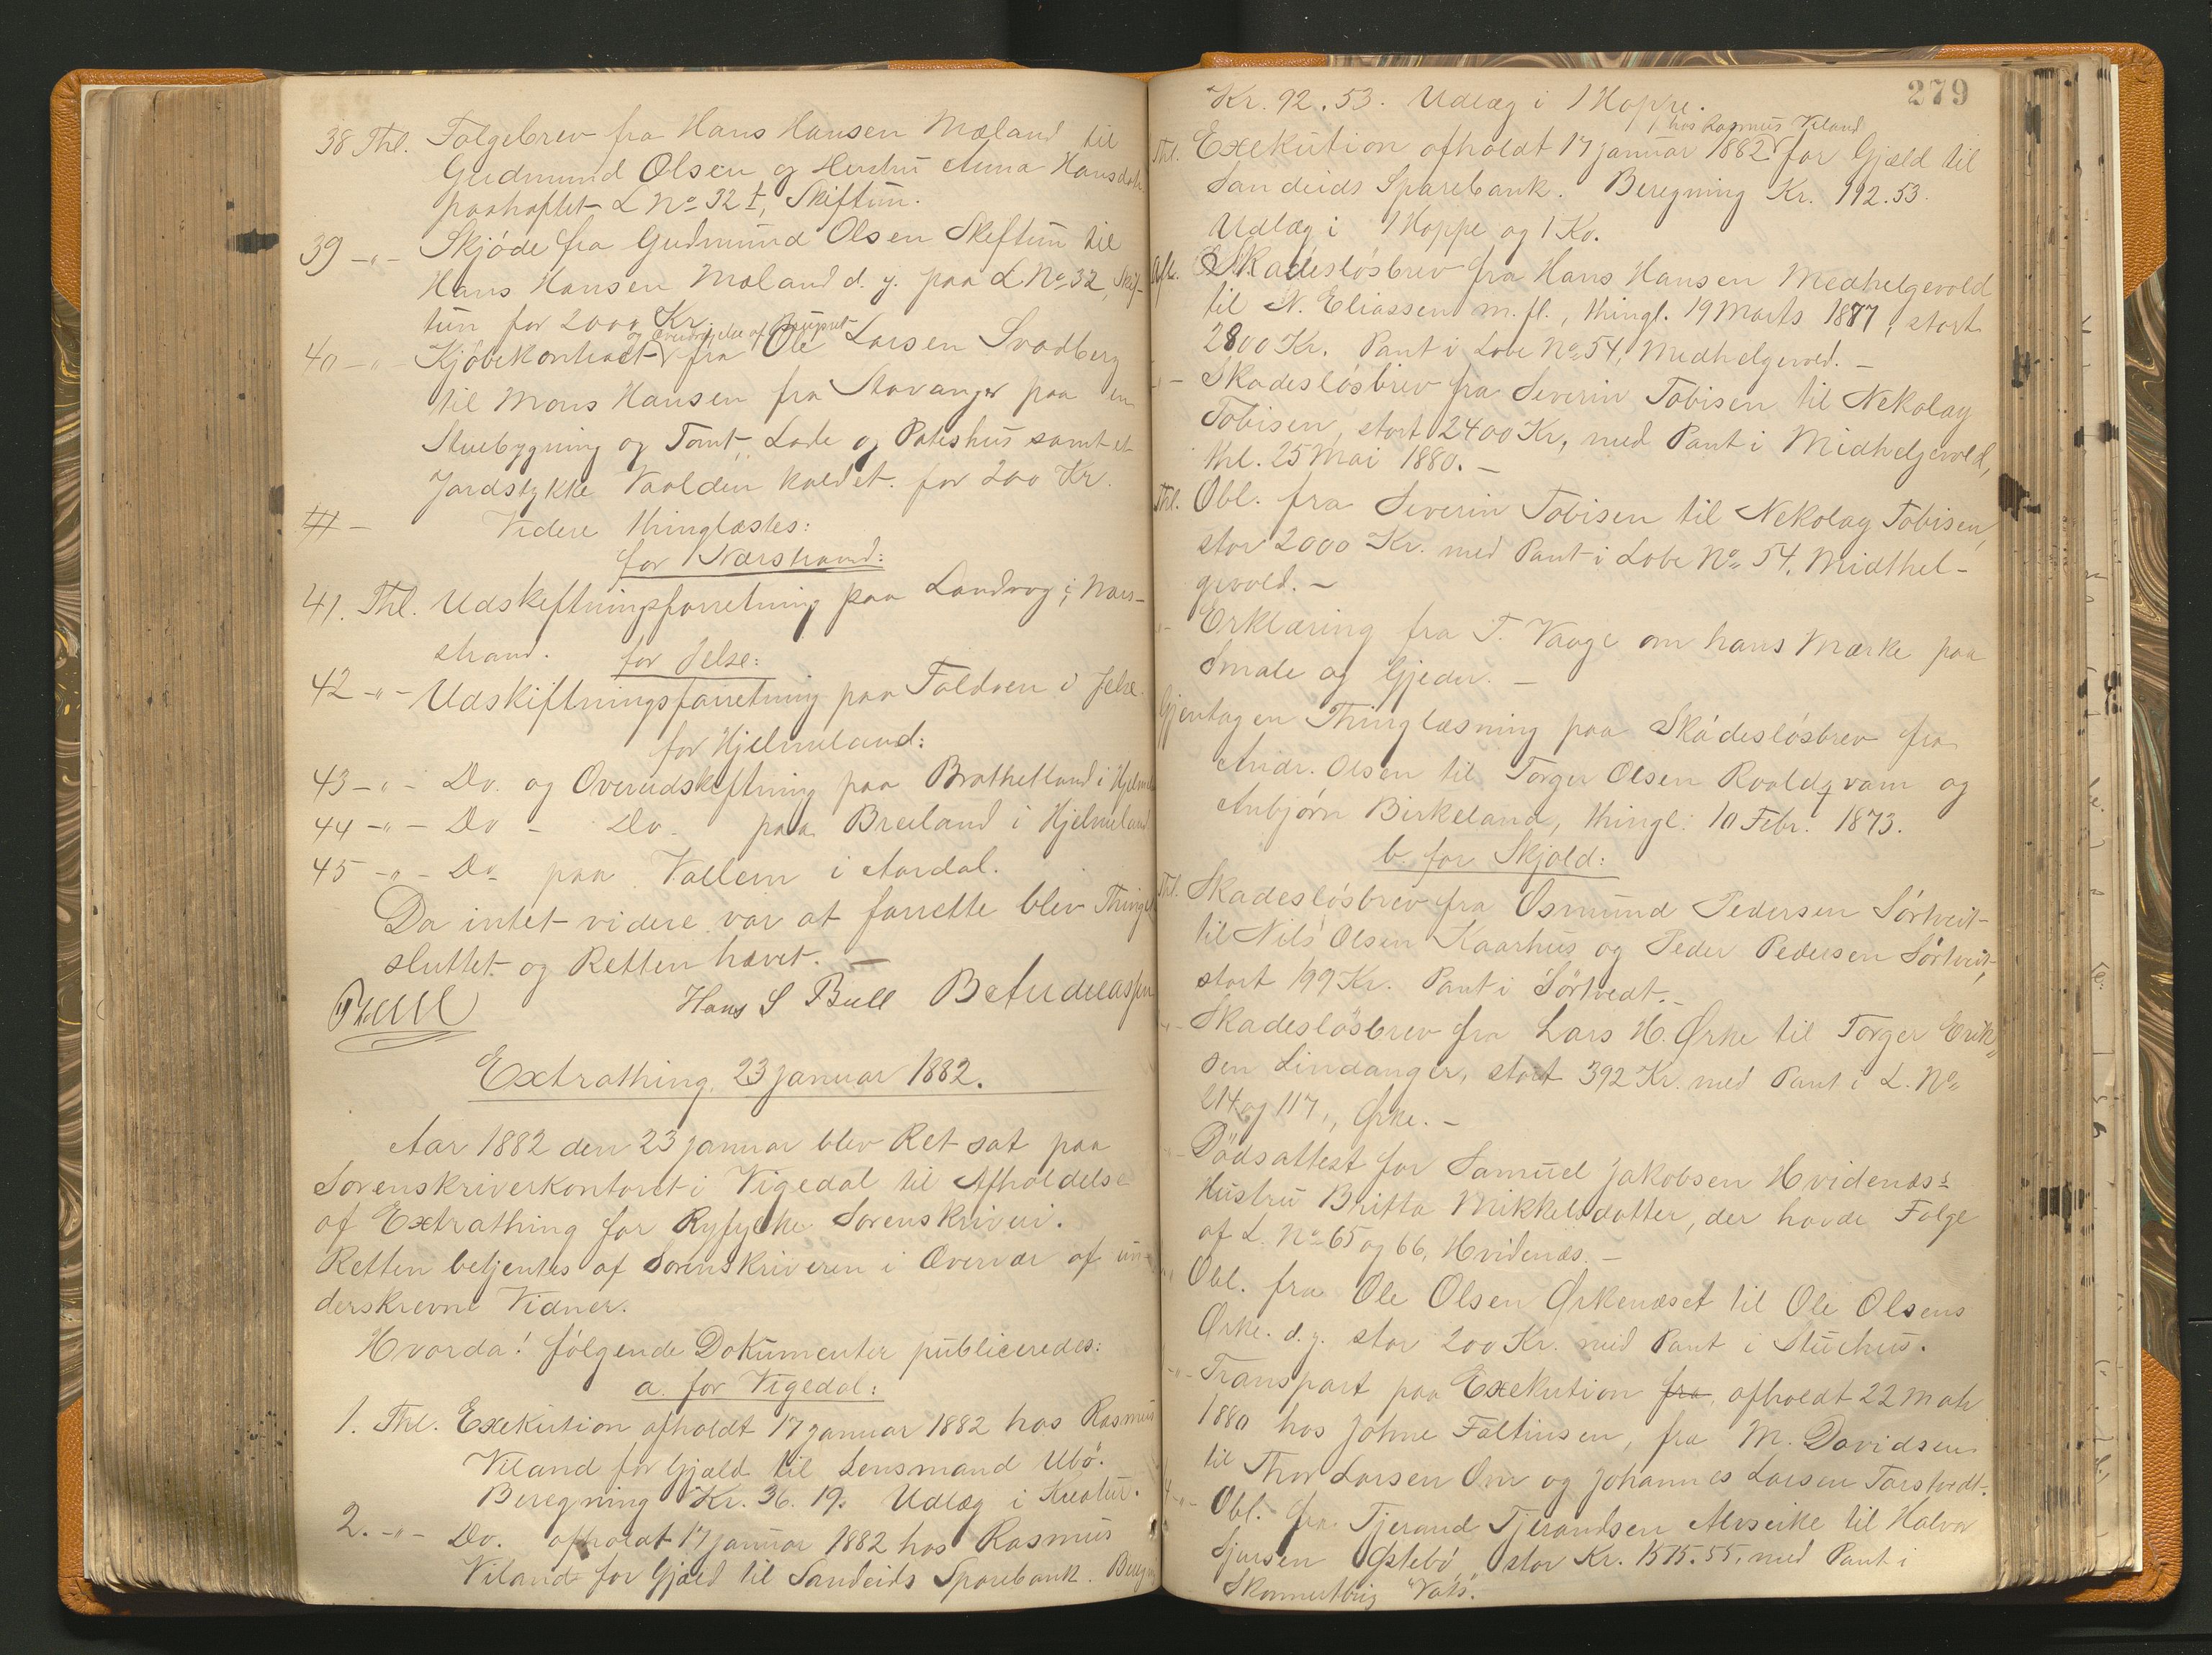 38 Thl. Følgebrev fra Hans Hansen Mæland til
Gudmund Olsen og Hustru Anna Hansdtr
paahæftet L No 32 f, Skiftun.
39 -"- Skjøde fra Gudmund Olsen Skiftun til
Hans Hansen Mæland d. y. paa L No 32, Skif-
tun for 2000 Kr.
og Overdragelse af
40 -"- Kjøbekontract fra Ole Larsen Svadberg
til Mons Hansen fra Stavanger paa en
Stuebygning og Tomt, Lade og Poteshus samt et
Jordstykke Vaolden kaldet for 200 Kr.
41 - Videre thinglæstes:
for Nærstrand:
41. Thl. Udskiftningsforretning paa Landvog i Nær-
strand.
for Jelse:
42 -"- Udskiftningsforretning paa Foldøen i Jelse.
for Hjelmeland:
43 -"- Do. og Overudskiftning paa Brathetland i Hjelmel
44 -"- Do - Do - paa Breiland i Hjelmeland
45 -"- Do paa Valleim i Aardal.
Da intet videre var at forrette blev Thinget
sluttet og Retten hævet. —
Hans S Bull B Andreassen
Extrathing 23 januar 1882.
Aar 1882 den 23 januar blev Ret sat paa
Sorenskriverkontoret i Vigedal til Afholdelse
af Extrathing for Ryfylke Sorenskriveri.
Retten betjentes af Sorenskriveren i Overvær af un-
derskrevne Vidner.
Hvorda! følgende Dokumenter publiceredes:
a. for Vigedal:
1. Thl. Exekution afholdt 17 januar 1882 hos Rasmus
Viland for Gjæld til Lensmand Ubø.
Beregning Kr. 36.19. Udlæg i Kreatur.
2. -"- Do. afholdt 17 januar 1882 hos Rasmus
Viland for Gjæld til Sandeids Sparebank. Beregn
279
Kr. 92.53. Udlæg i 1 Hoppe.
hos Rasmus Viland
Thl. Exekution afholdt 17 januar 1882 for Gjæld til
Sandeids Sparebank. Beregning Kr. 112.53.
Udlæg i 1 Hoppe og 1 Ko.
Afl. Skadesløsbrev fra Hans Hansen Medhelgevold
til N. Eliassen m. fl., thingl. 19 Marts 1877, stort
2800 Kr. Pant i Løbe No 54, Medhelgevold. —
-"- Skadesløsbrev fra Severin Tobisen til Nekolay
Tobisen, stort 2400 Kr, med Pant i Midhelgevold,
thl. 25 Mai 1880. —
Thl. Obl. fra Severin Tobisen til Nekolay Tobisen,
stor 2000 Kr. med Pant i Løbe No 54, Midthel-
gevold. —
-"- Erklæring fra T. Vaage om hans Mærke paa
Smale og Gjeder. —
Gjentagen Thinglæsning paa Skadesløsbrev fra
Andr. Olsen til Torger Olsen Roaldqvam og
Anbjørn Birkeland, thingl: 10 Febr. 1873.
b. for Skjold:
Thl. Skadesløsbrev fra Osmund Pedersen Sørtveit
til Nils Olsen Kaarhus og Peder Pedersen Sørtveit,
stort 199 Kr. Pant i Sørtvedt. —
-"- Skadesløsbrev fra Lars H. Ørke til Torger Erik-
sen Lindanger, stort 392 Kr. med Pant i L. No
214 og 117, Ørke. —
-"- Dødsattest for Samuel Jakobsen Hvidenæs's
Hustru Britta Mikkelsdatter, der havde Følge
af L. No 65 og 66, Hvidenæs. —
-"- Obl. fra Ole Olsen Ørkenæset til Ole Olsens
Ørke d.y. stor 200 Kr. med Pant i Stuehus.
-"- Transport paa Exekution fra, afholdt 22 Mah
1880 hos Johne Faltinsen, fra M. Davidsen
til Thor Larsen Om og Johannes Larsen Tarstvedt.
-"- Obl. fra Tjerand Tjerandsen Alvseike til Halvor
Sjursen Østebø, stor Kr. 1515.55, med Pant i
Skonnertbrig "Vats".